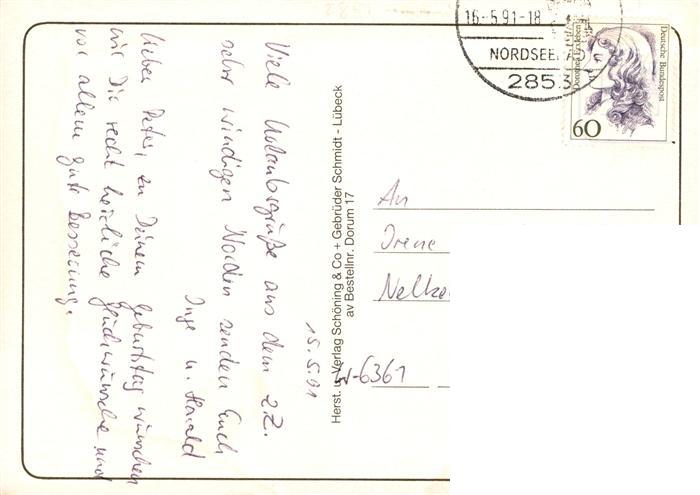 Viele Urlaubsgrüße aus dem z.Z.
sehr windigen Norden senden Euch
Inge u. Harald
15.5.91
Lieber Peter, zu Deinem Geburtstag wünschen
wir Dir recht herzliche Glückwünsche und
vor allem gute Besserung.
Herst. u. Verlag Schöning & Co + Gebrüder Schmidt - Lübeck
av Bestellnr. Dorum 17
16.-5.91-18
NORDSEE
285
Deutsche Bundespost
60
An
Irene
Nelke
W-6361